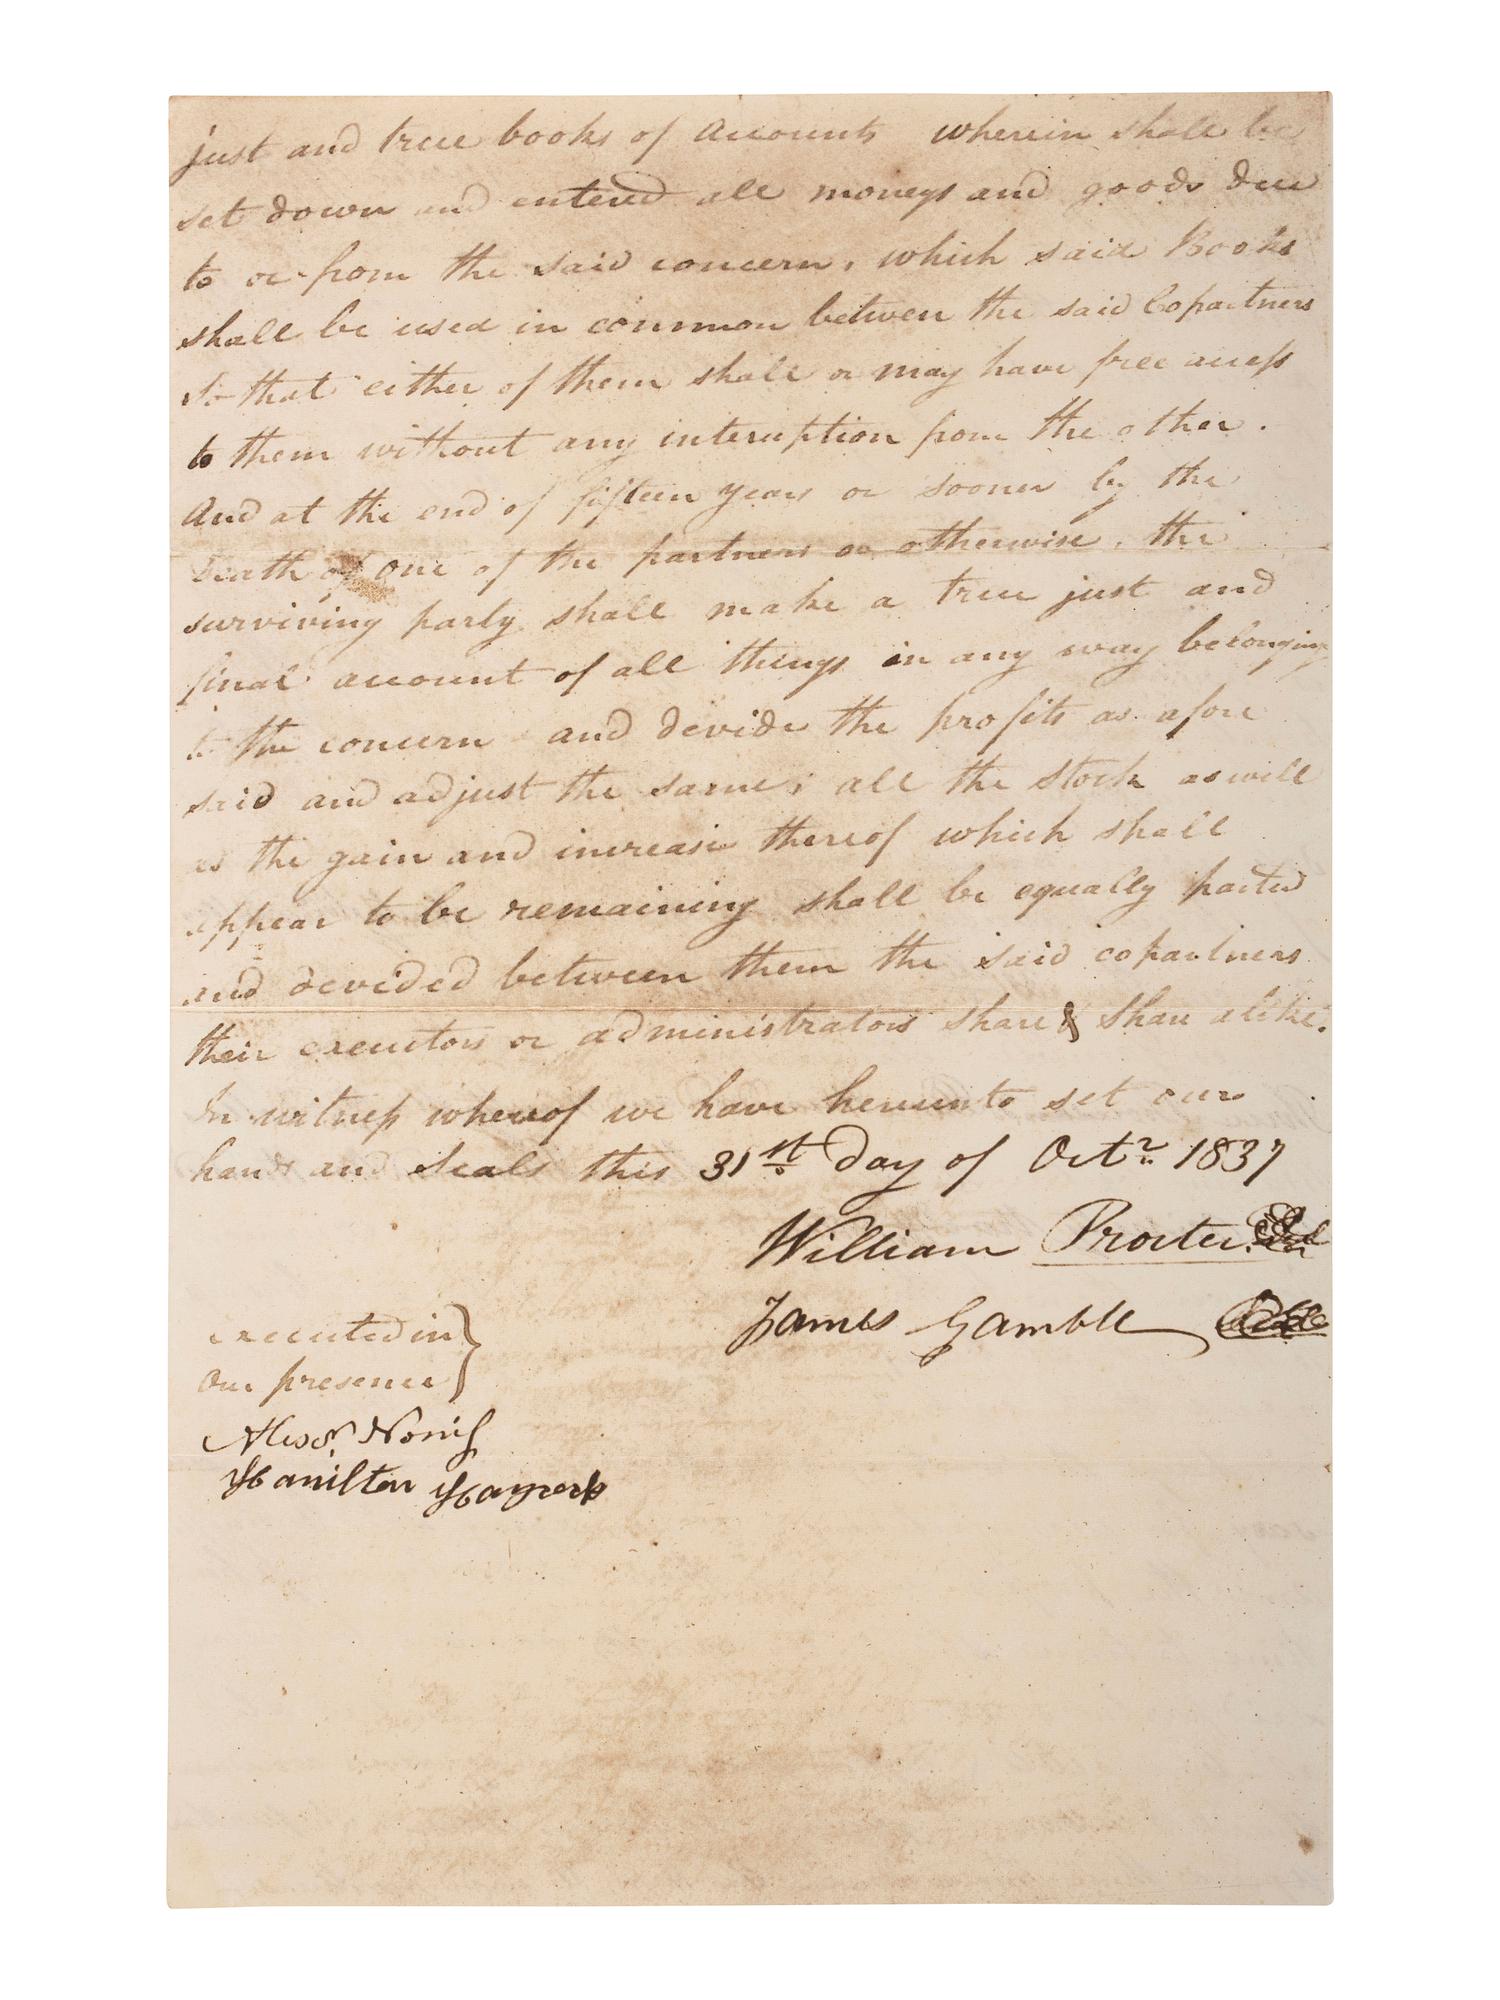 just and true books of Accounts wherein shall be
set down and entered all moneys and goods due
to or from the said concern, which said Books
shall be used in common between the said Copartners
So that either of them shall or may have free access
to them without any interuption from the other.
And at the end of fifteen years or sooner by the
Death of one of the partners or otherwise, the
surviving party shall make a true just and
final account of all things in any way belonging
to the concern and devide the profits as afore
said and adjust the same; all the stock as well
as the gain and increase thereof which shall
appear to be remaining shall be equally parted
and devided between them the said copartners
their executors or administrators share & share alike.
In witness whereof we have hereunto set our
hands and seals this 31st. day of Octr. 1837
William Procter
James Gamble
executed in
Our presence
Alexr. Norris
Hamilton